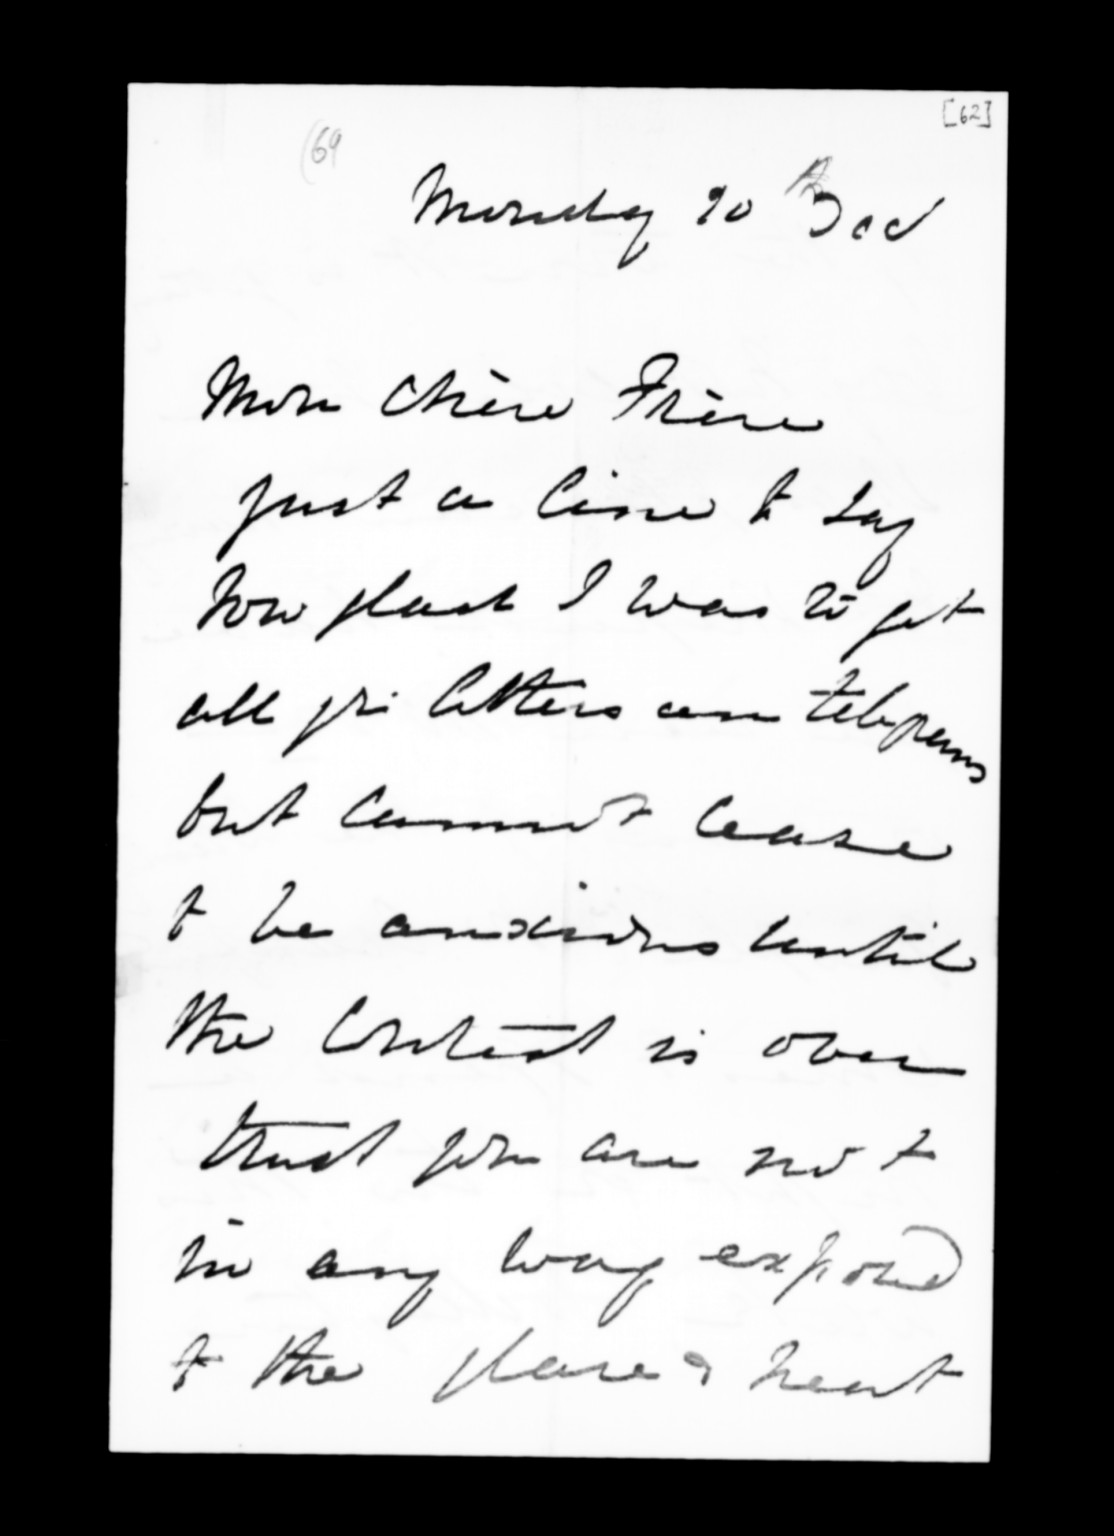 [62]
(69
Monday 20
Mon Chère Frère
just a line to say
how glad I was to get
all yr letters an telegrams
but cannot cease
to be anxious until
the Contest is over
trust you are not
in any way exposed
to the glare & heat